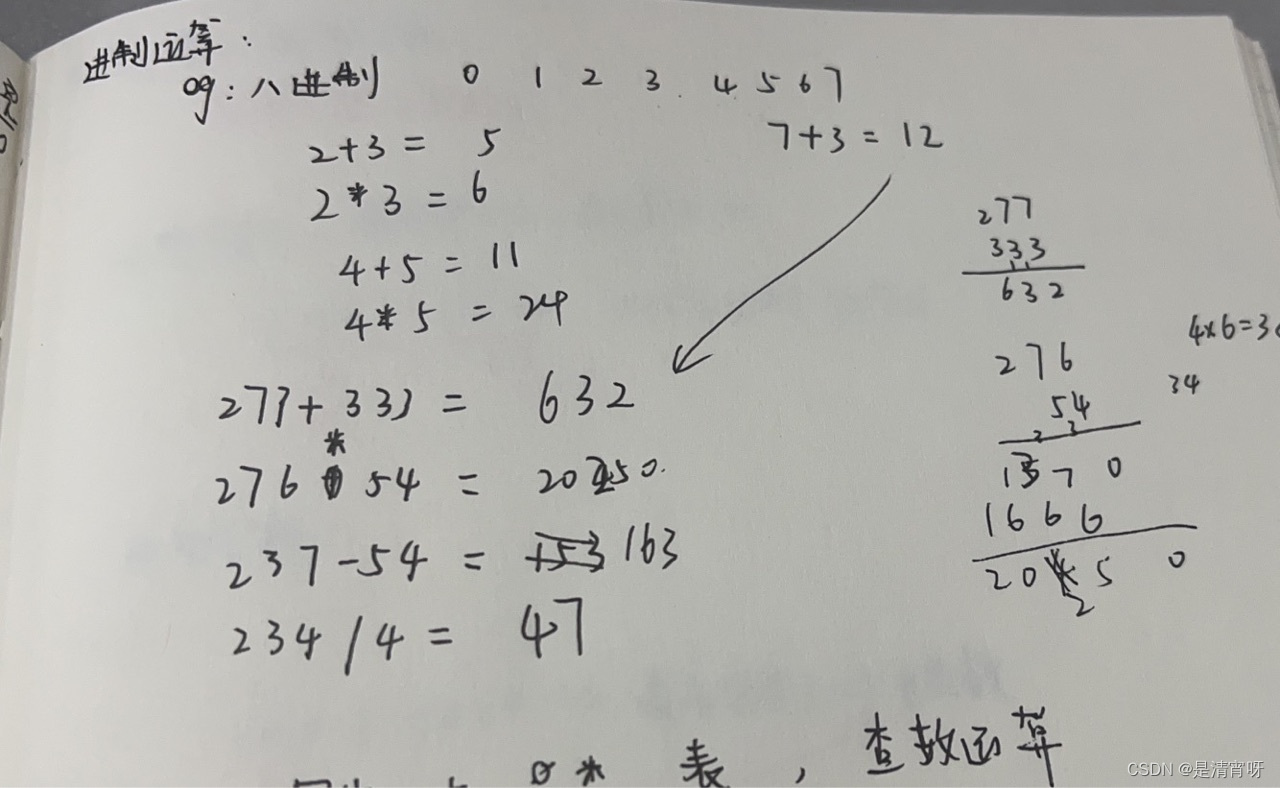 进制运算:
og: 八进制 0 1 2 3 4 5 6 7
2+3 = 5
7+3 = 12
2*3 = 6
4+5 = 11
4*5 = 24
277+333 = 632
276 * 54 = 20250.
237-54 = 163
234/4 = 47
277
333
632
276
54
4x6=3
34
1570
1666
20250
表,查数运算
CSDN @是清宵呀